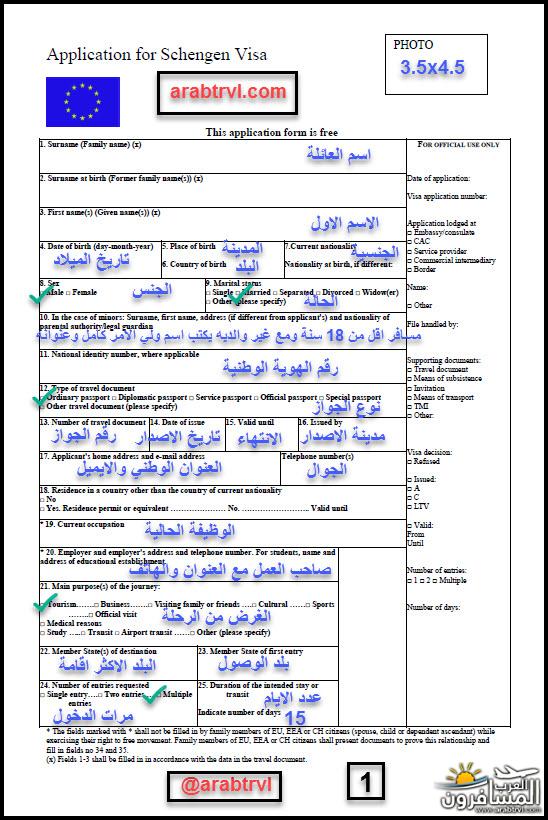 Application for Schengen Visa
PHOTO
3.5x4.5
arabtrvl.com
This application form is free
1. Surname (Family name) (x)
اسم العائلة
FOR OFFICIAL USE ONLY
2. Surname at birth (Former family name(s)) (x)
Date of application:
Visa application number:
3. First name(s) (Given name(s)) (x)
الاسم الاول
Application lodged at
□ Embassy/consulate
□ CAC
□ Service provider
□ Commercial intermediary
□ Border
Name:
□ Other
File handled by:
4. Date of birth (day-month-year)
تاريخ الميلاد
5. Place of birth
المدينة
6. Country of birth
البلد
7.Current nationality
الجنسية
Nationality at birth, if different:
8. Sex
الجنس
Male □ Female
9. Marital status
□ Single □ Married □ Separated □ Divorced □ Widow(er)
□ Other (please specify)
الحالة
10. In the case of minors: Surname, first name, address (if different from applicant's) and nationality of
parental authority/legal guardian
مسافر اقل من 18 سنة ومع غير والديه يكتب اسم ولي الامر كامل وعنوانه
11. National identity number, where applicable
رقم الهوية الوطنية
Supporting documents:
□ Travel document
□ Means of subsistence
□ Invitation
□ Means of transport
□ TMI
□ Other:
12. Type of travel document
Ordinary passport □ Diplomatic passport □ Service passport □ Official passport □ Special passport
□ Other travel document (please specify)
نوع الجواز
13. Number of travel document
رقم الجواز
14. Date of issue
تاريخ الاصدار
15. Valid until
الانتهاء
16. Issued by
مدينة الاصدار
17. Applicant's home address and e-mail address
العنوان الوطني والايميل
Telephone number(s)
الجوال
Visa decision:
□ Refused
□ Issued:
□ A
□ C
□ LTV
□ Valid:
From
Until
18. Residence in a country other than the country of current nationality
□ No
□ Yes. Residence permit or equivalent ………………… No. …………………….. Valid until
* 19. Current occupation
الوظيفة الحالية
* 20. Employer and employer's address and telephone number. For students, name and
address of educational establishment.
صاحب العمل مع العنوان والهاتف
Number of entries:
□ 1 □ 2 □ Multiple
Number of days:
21. Main purpose(s) of the journey:
Tourism…….□ Business……..□ Visiting family or friends ….□ Cultural ……□ Sports
…………□ Official visit
□ Medical reasons
□ Study …..□ Transit □ Airport transit ……□ Other (please specify)
الغرض من الرحلة
22. Member State(s) of destination
البلد الاكثر اقامة
23. Member State of first entry
بلد الوصول
24. Number of entries requested
□ Single entry….□ Two entries….□ Multiple
entries
مرات الدخول
25. Duration of the intended stay or
transit
عدد الايام
Indicate number of days
15
* The fields marked with * shall not be filled in by family members of EU, EEA or CH citizens (spouse, child or dependent ascendant) while
exercising their right to free movement. Family members of EU, EEA or CH citizens shall present documents to prove this relationship and
fill in fields no 34 and 35.
(x) Fields 1-3 shall be filled in in accordance with the data in the travel document.
@arabtrvl
1
العرب
المسافرون
www.arabtrvl.com